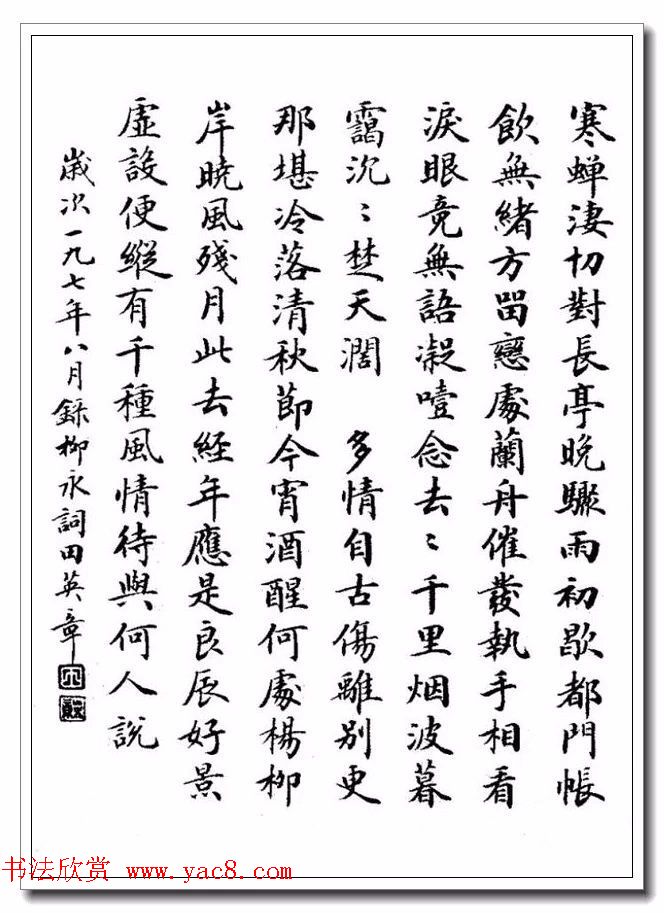 寒蝉淒切對長亭晚驟雨初歇都門帳
飲無緒方畱戀處蘭舟催發執手相看
淚眼竞無語凝噎念去〻千里烟波暮
靄沉〻楚天濶　多情自古傷離别更
那堪冷落清秋節今宵酒醒何處楊柳
岸曉風殘月此去經年應是良辰好景
虛設便縱有千種風情待與何人說
歲次一九七年八月錄柳永詞田英章
书法欣赏 www.yac8.com